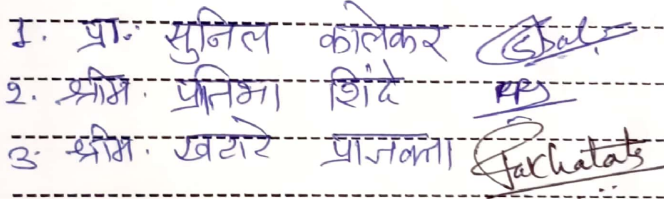 1. प्रा. सुनिल कालेकर
२. श्रीम. प्रतिभा शिंदे
३. श्रीम. खटारे प्राजक्ता